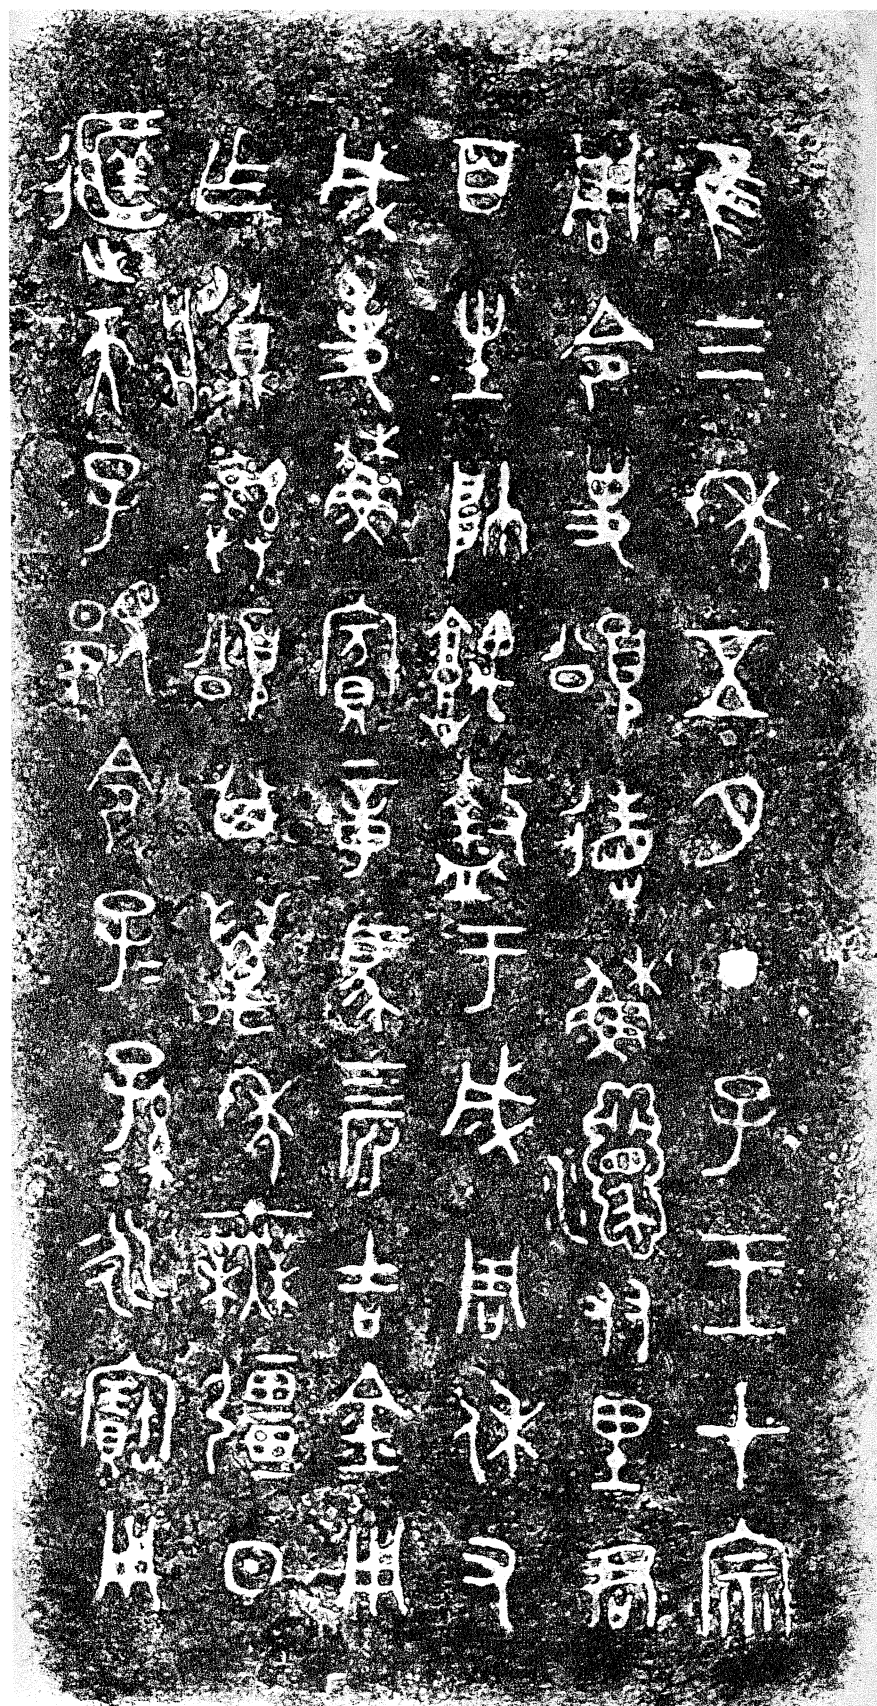 隹三年五月丁巳王才宗
周令史頌省穌友里君
百生帥堣盩于成周休又
成事穌賓章馬亖匹吉金用
乍𩰫彝頌其萬年無疆日
天子令子=孫=永寶用